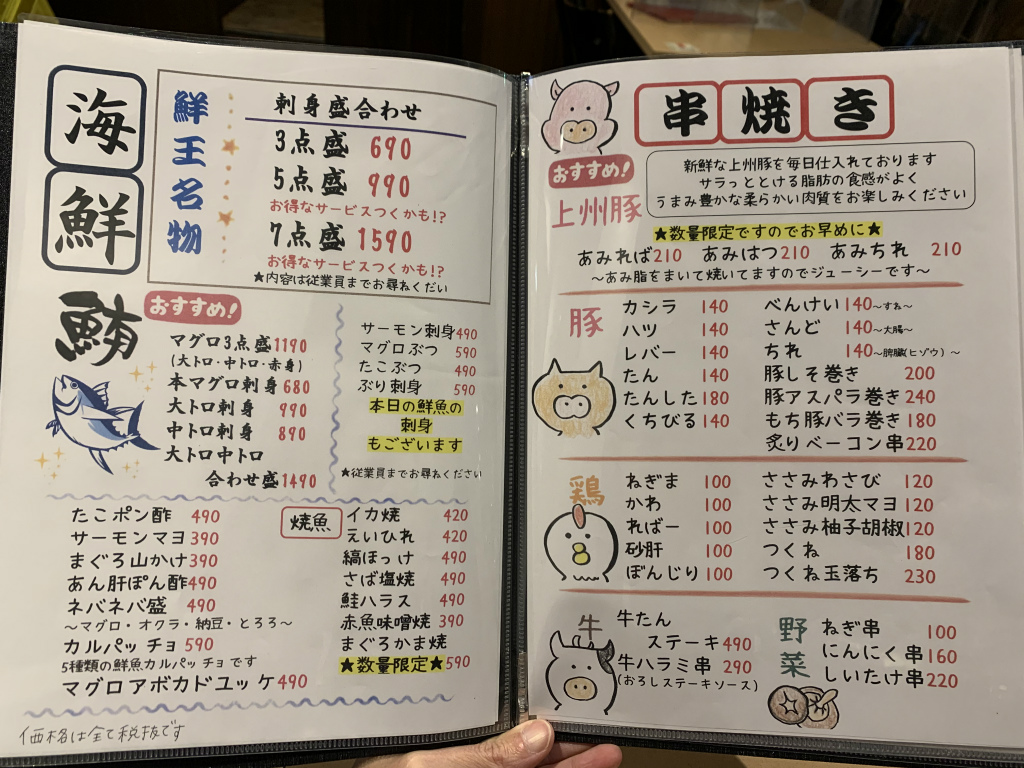 海鮮
鮮王名物
刺身盛合わせ
3点盛 690
5点盛 990
お得なサービスつくかも!?
7点盛 1590
お得なサービスつくかも!?
★内容は従業員までお尋ねくだい
鮪
おすすめ!
マグロ3点盛 1190
(大トロ・中トロ・赤身)
本マグロ刺身 680
大トロ刺身 990
中トロ刺身 890
大トロ中トロ
合わせ盛 1490
サーモン刺身 490
マグロぶつ 590
たこぶつ 490
ぶり刺身 590
本日の鮮魚の
刺身
もございます
★従業員までお尋ねください
たこポン酢 490
サーモンマヨ 390
まぐろ山かけ 390
あん肝ぽん酢 490
ネバネバ盛 490
～マグロ・オクラ・納豆・とろろ～
カルパッチョ 590
5種類の鮮魚カルパッチョです
マグロアボカドユッケ 490
焼魚
イカ焼 420
えいひれ 420
縞ほっけ 490
さば塩焼 490
鮭ハラス 490
赤魚味噌焼 390
まぐろかま焼
★数量限定★ 590
価格は全て税抜です
串焼き
おすすめ!
上州豚
新鮮な上州豚を毎日仕入れております
サラっととける脂肪の食感がよく
うまみ豊かな柔らかい肉質をお楽しみください
★数量限定ですのでお早めに★
あみれば 210 あみはつ 210 あみちれ 210
～あみ脂をまいて焼いてますのでジューシーです～
豚
カシラ 140
ハツ 140
レバー 140
たん 140
たんした 180
くちびる 140
べんけい 140 ～すね～
さんど 140 ～大腸～
ちれ 140 ～脾臓(ヒゾウ)～
豚しそ巻き 200
豚アスパラ巻き 240
もち豚バラ巻き 180
炙りベーコン串 220
鶏
ねぎま 100
かわ 100
ればー 100
砂肝 100
ぼんじり 100
ささみわさび 120
ささみ明太マヨ 120
ささみ柚子胡椒 120
つくね 180
つくね玉落ち 230
牛
牛たん
ステーキ 490
牛ハラミ串 290
(おろしステーキソース)
野菜
ねぎ串 100
にんにく串 160
しいたけ串 220